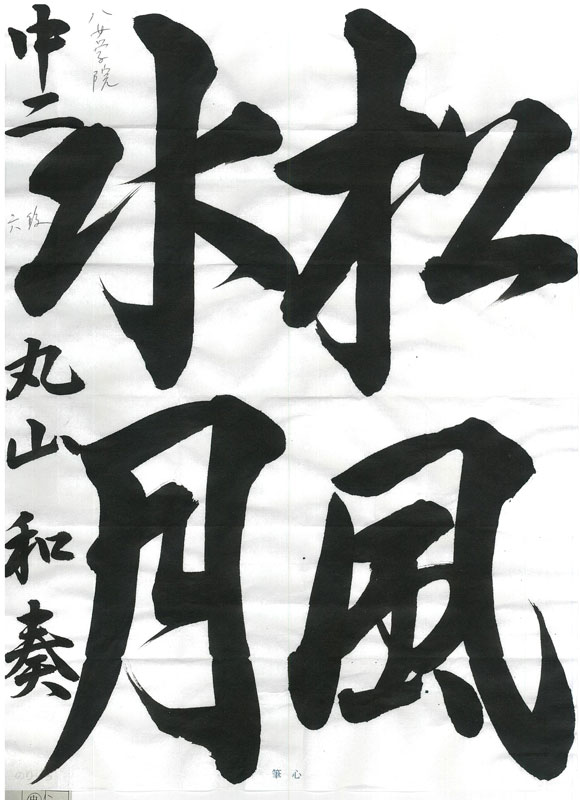 松風
水月
八女学院
中二
六段
丸山和奏
心筆